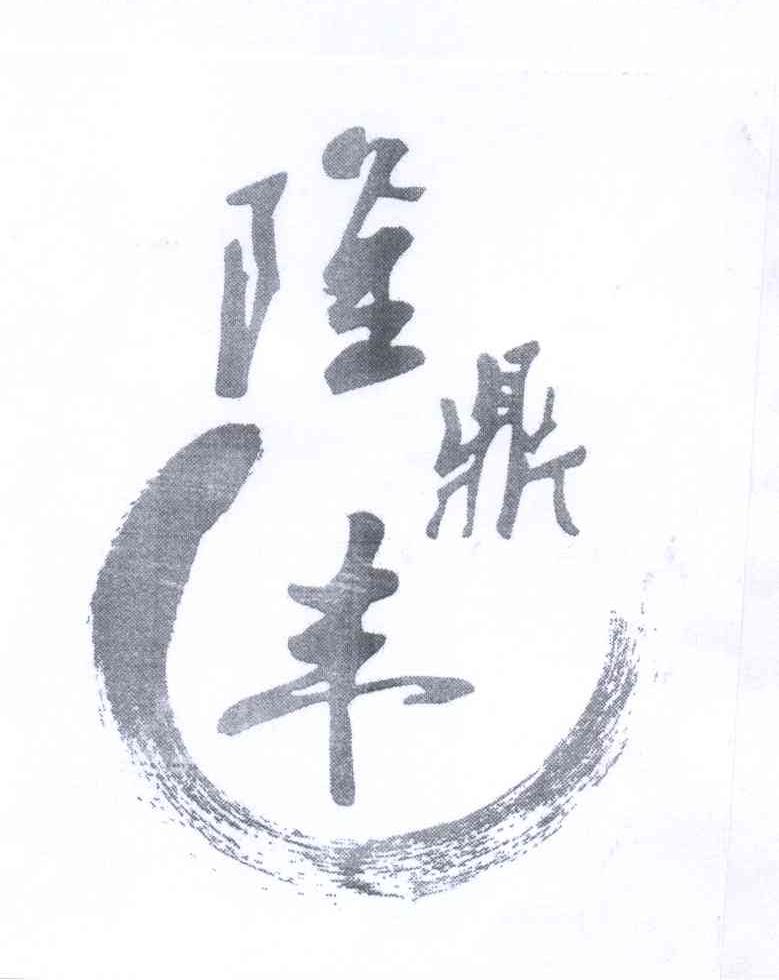 隆
鼎
丰